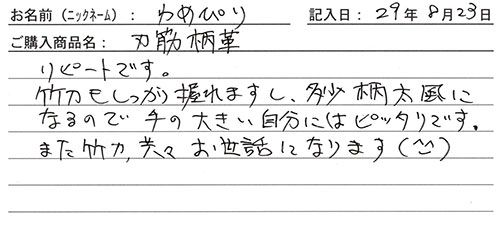 お名前（ニックネーム）： わめぴり 記入日： 29年 8月23日
ご購入商品名： 刃筋柄革
リピートです。
竹刀もしっかり握れますし、多少柄太風に
なるので手の大きい自分にはピッタリです。
また竹刀、共々お世話になります(^^)